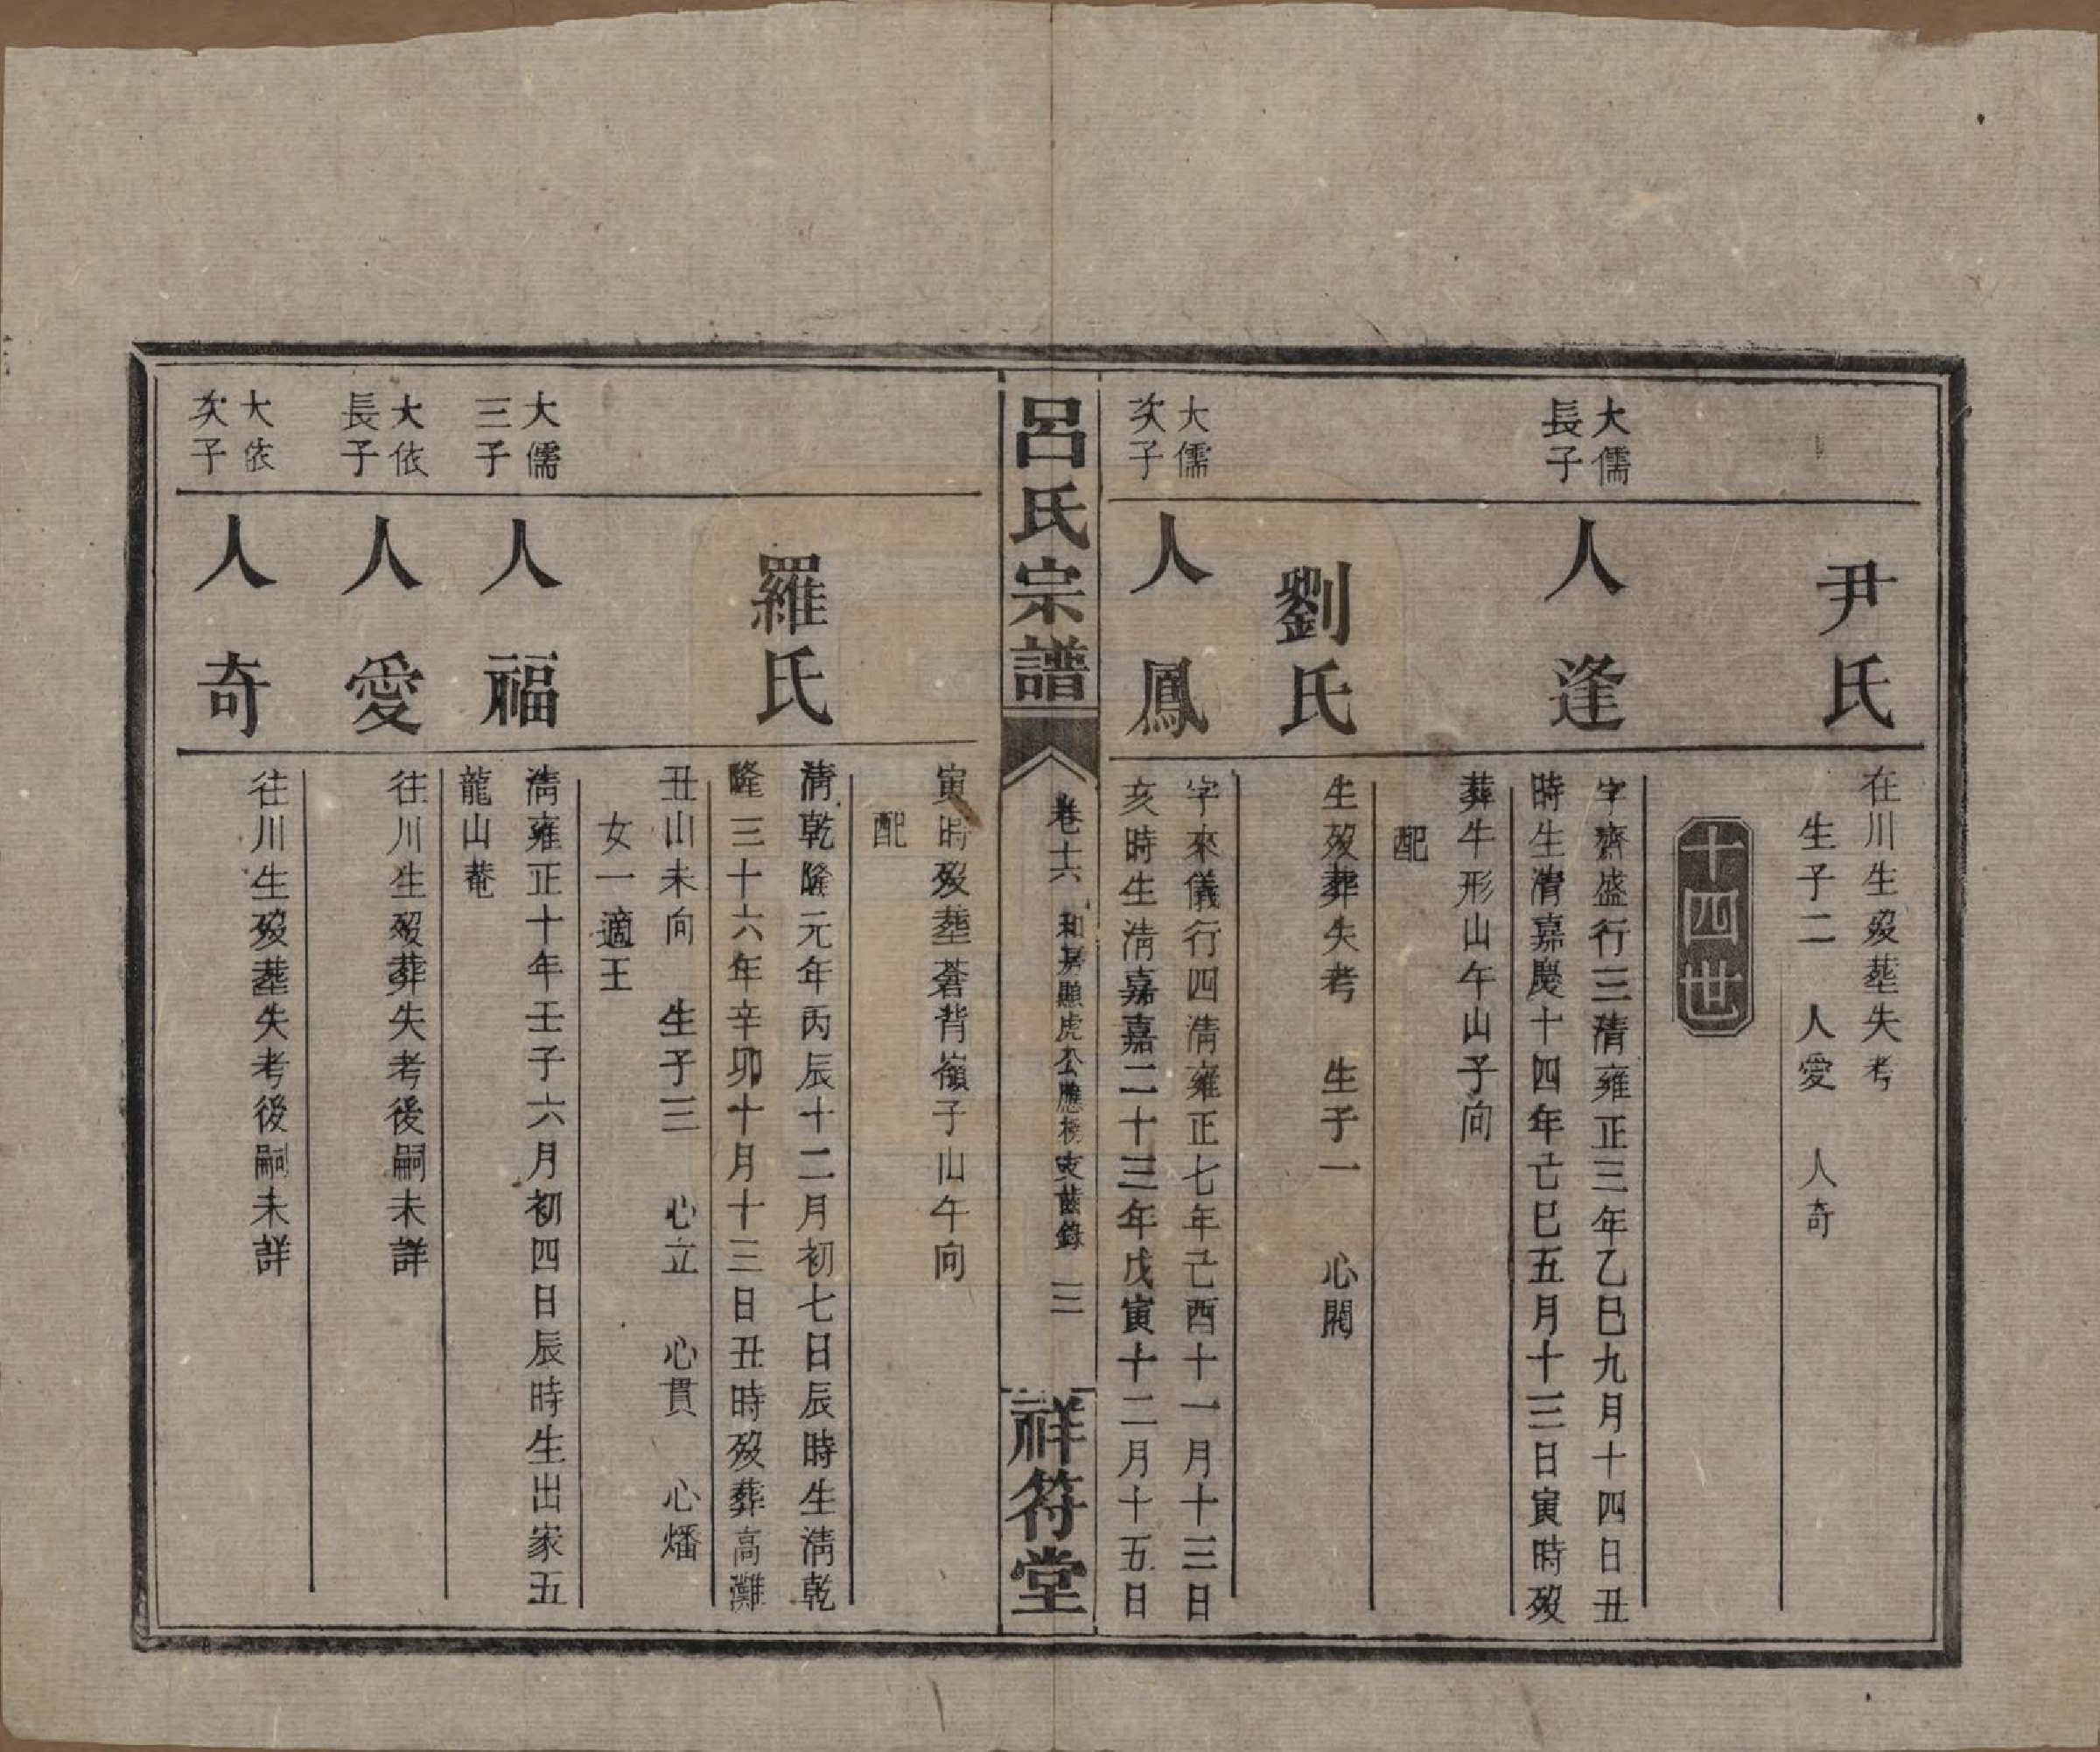 尹氏
在川生歿塟失考
生子二　人愛　人奇
十四世
大儒
長子
人逢
字濟盛行三清雍正三年乙巳九月十四日丑
時生清嘉慶十四年亡巳五月十三日寅時歿
葬牛形山午山子向
配
劉氏
生歿葬失考　生子一　心閣
大儒
次子
人鳳
字來儀行四清雍正七年己酉十一月十三日
亥時生清嘉嘉二十三年戊寅十二月十五日
呂氏宗譜
卷十六　和房顯虎公應 支齒錄　三
祥符堂
寅時歿塟蒼背嶺子山午向
配
羅氏
清乾隆元年丙辰十二月初七日辰時生清乾
隆三十六年辛卯十月十三日丑時歿葬高灘
丑山未向　生子三　心立　心貫　心燔
女一適王
大儒
三子
人福
清雍正十年壬子六月初四日辰時生出家五
龍山菴
大依
長子
人愛
往川生歿葬失考後嗣未詳
大依
次子
人奇
往川生歿塟失考後嗣未詳